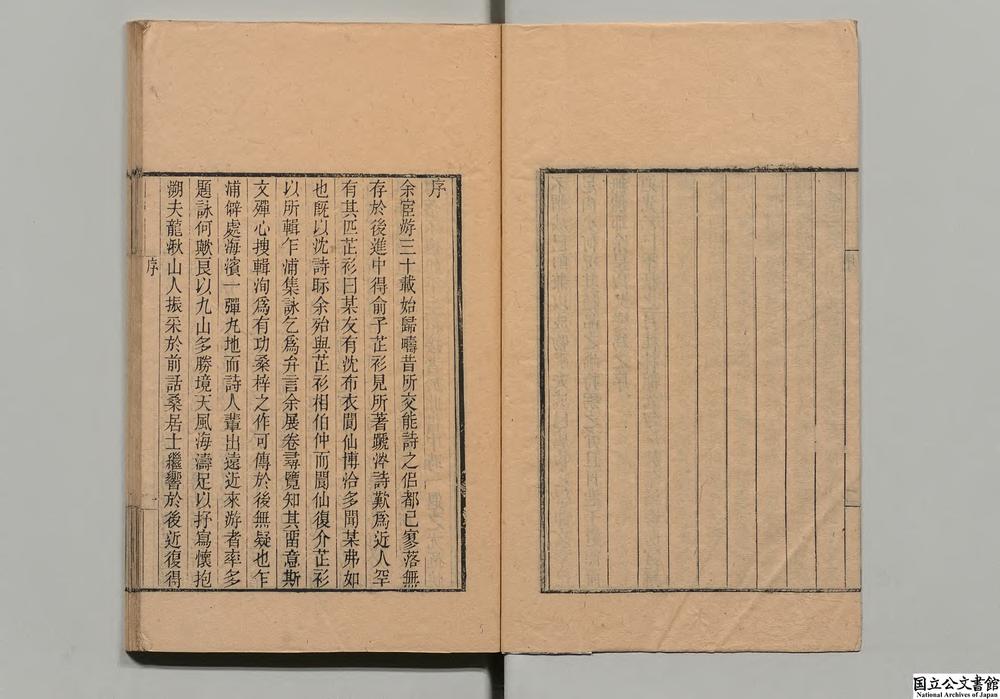 序
余宦游三十載始歸疇昔所交能詩之侶都已寥落無
存於後進中得俞子芷衫見所著蹏涔詩歎爲近人罕
有其匹芷衫曰某友有沈布衣閬仙博洽多聞某弗如
也既以沈詩眎余殆與芷衫相伯仲而閬仙復介芷衫
以所輯乍浦集詠乞爲弁言余展卷尋覽知其畱意斯
文殫心搜輯洵爲有功桑梓之作可傳於後無疑也乍
浦僻處海濱一彈丸地而詩人輩出遠近來游者率多
題詠何歟良以九山多勝境天風海濤足以抒寫懷抱
溯夫龍湫山人振采於前話桑居士繼響於後近復得
序
一
国立公文書館
National Archives of Japan